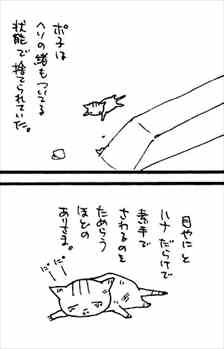 ポチは
ヘソの緒もついてる
状態で捨てられていた。
目やにと
ハナだらけで
素手で
さわるのを
ためらう
ほどの
ありさま。
だにー
だにー